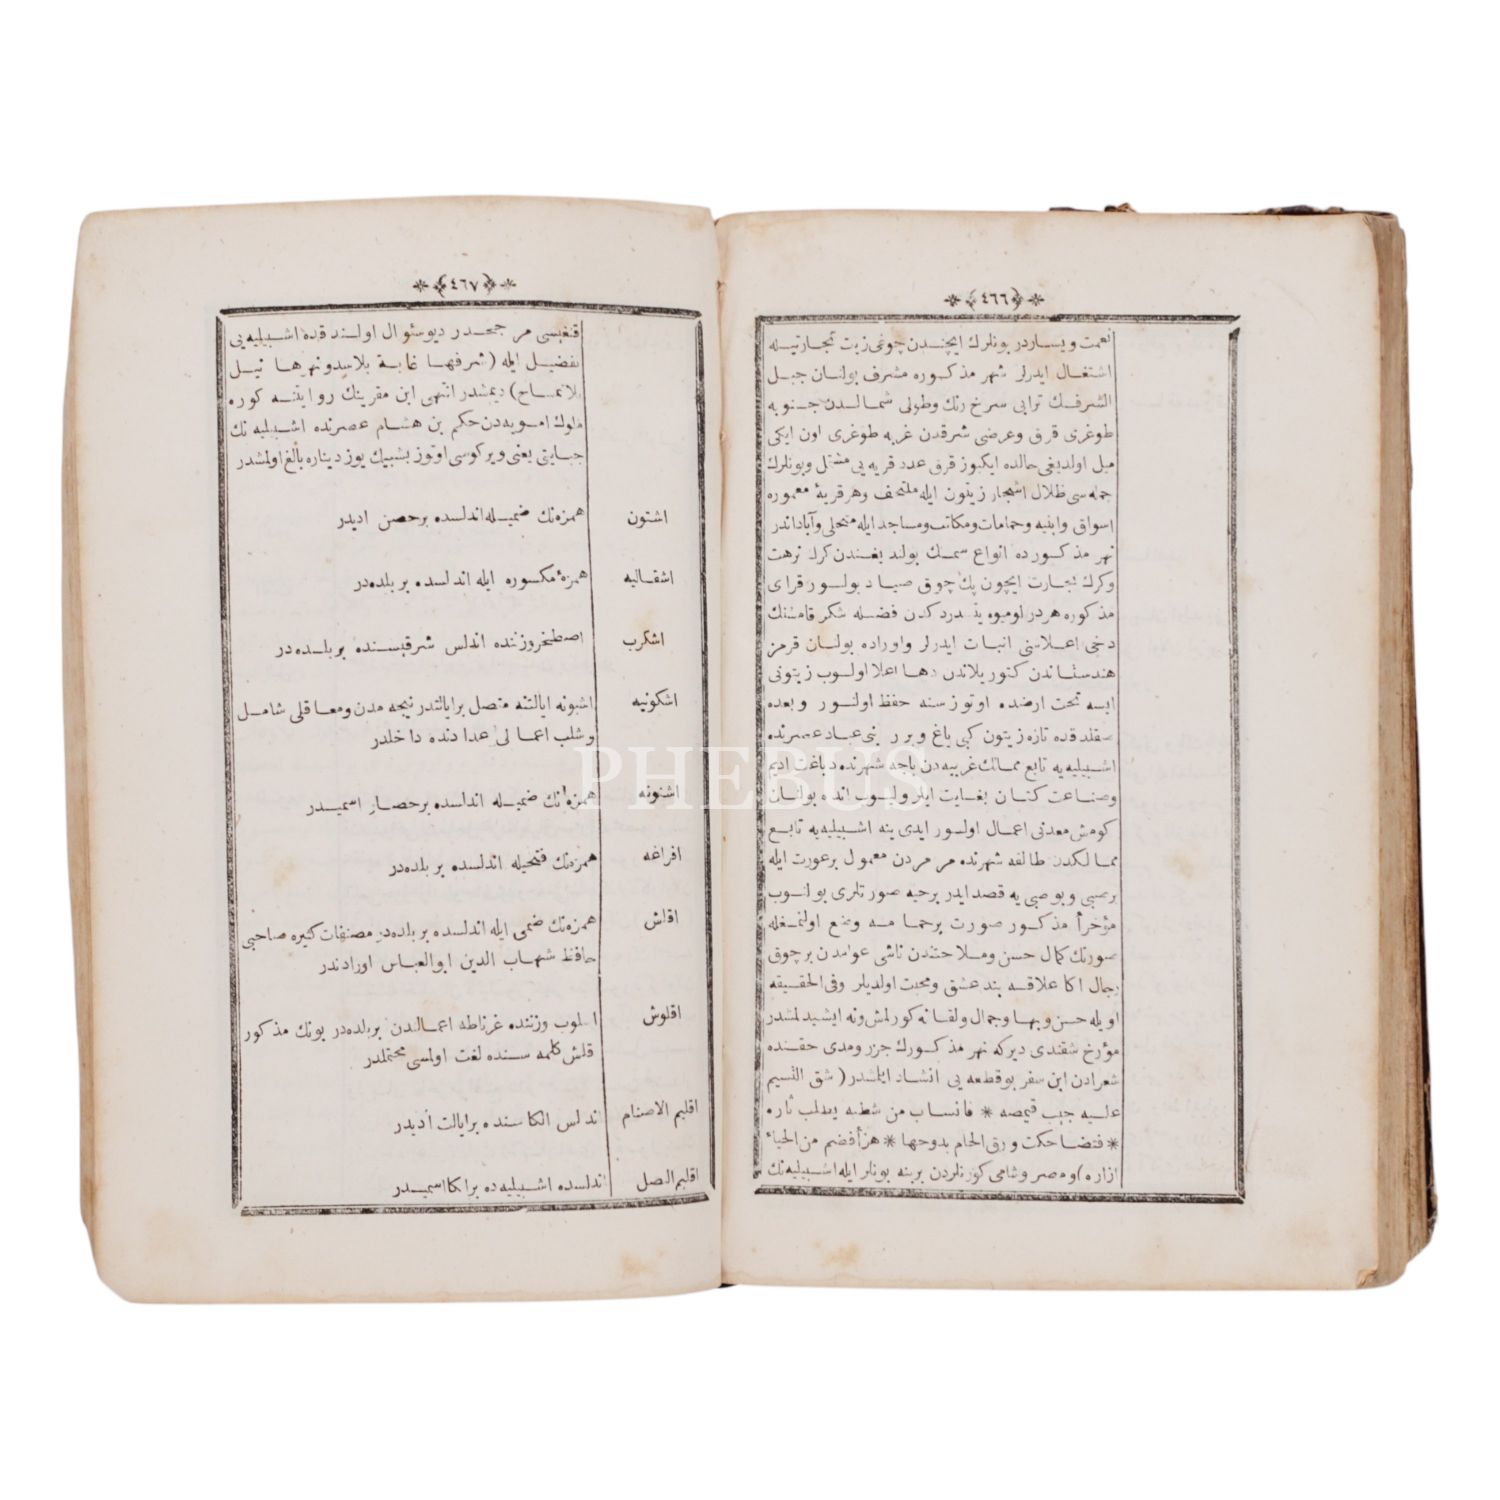 ٤٦٦
نعمت ويساردر بونلرك ايچندن چوغى زيت تجارتيله
اشتغال ايدرلر شهر مذكوره مشرف بولنان جبل
الشرفك ترابى سرخ رنك وطولى شمالدن جنوبه
طوغرى قرق وعرضى شرقدن غربه طوغرى اون ايكى
ميل اولديغى حالده ايكيوز قرق عدد قريه يى مشتمل وبونلرك
جمله سى ظلال اشجار زيتون ايله ملتحف وهر قرية معموره
اسواق وابنيه وحمامات ومكاتب ومساجد ايله متحلى وآباداندر
نهر مذكورده انواع سمك بولند يغندن كرك نزهت
وكرك تجارت ايچون پك چوق صياد بولنور قراى
مذكوره هر درلو ميوه يتشدردكدن فضله شكر قامشنك
دخى اعلاسنى انبات ايدرلر واوراده بولنان قرمز
هندستاندن كتوريلاندن دها اعلا اولوب زيتونى
ايسه تحت ارضده اوتوز سنه حفظ اولنور وبعده
صقلدقده تازه زيتون كبى ياغ ويرر بنى عباد عصرنده
اشبيليه يه تابع ممالك غربيه دن باجه شهرنده دباغت اديم
وصناعت كتان بغايت ايلرولیوب انده بولنان
كومش معدنى اعمال اولنور ايدى ينه اشبيليه يه تابع
ممالكدن طالقه شهرنده مرمردن معمول بر عورت ايله
بر صبى وبو صبى يه قصد ايدر بر حيه صورتلرى بولنوب
مؤخرأ مذكور صورت بر حمامه وضع اولنمغله
صورتك كمال حسن وملاحتندن ناشى عوامدن بر چوق
رجال اكا علاقه بند عشق ومحبت اولديلر وفى الحقيقه
اويله حسن وبها وجمال ولقا نه كورلمش ونه ايشيدلمشدر
مؤرخ شقندى ديركه نهر مذكورك جزر ومدى حقنده
شعرادن ابن سفر بو قطعه يى انشاد ايلمشدر (شق النسيم
عليه جيب قيصه * فانساب من شطيه يطلب ثاره
* فتضاحكت ورق الحمام بدوحها * هزأ فضم من الحياء
ازاره) او مصر وشامى كورنلردن برينه بونلر ايله اشبيليه نك
٤٦٧
قنغيسى مرجحدر ديو سئوال اولندقده اشبيليه يى
تفضيل ايله (شرفها غابة بلا سيد ونهرها نيل
بلا تمساح) ديمشدر انتهى ابن مقرينك روايتنه كوره
ملوك امويه دن حكم بن هشام عصرنده اشبيليه نك
جبايتى يعنى ويركوسى اوتوز بشبيك يوز ديناره بالغ اولمشدر
اشتون همزه نك ضميله اندلسده بر حصن اديدر
اشقاليه همزۀ مكسوره ايله اندلسده بر بلده در
اشكرب اصطخر وزننده اندلس شرقيسنده بر بلده در
اشكونيه اشبونه ايالتنه متصل بر ايالتدر نيجه مدن ومعاقلى شامل
وشلب اعمالى عدادنده داخلدر
اشنونه همزه نك ضميله اندلسده بر حصار اسميدر
افراغه همزه نك فتحيله اندلسده بر بلده در
اقلش همزه نك ضمى ايله اندلسده بر بلده در مصنفات كثيره صاحبى
حافظ شهاب الدين ابو العباس اورادندر
اقلوش اسلوب وزننده غرناطه اعمالندن بر بلده در بونك مذكور
قلش كلمه سنده لغت اولمسى محتملدر
اقليم الاصنام اندلس الكاسنده بر ايالت آديدر
اقليم العسل اندلسده اشبيليه ده بر الكا اسميدر
PHEBUS